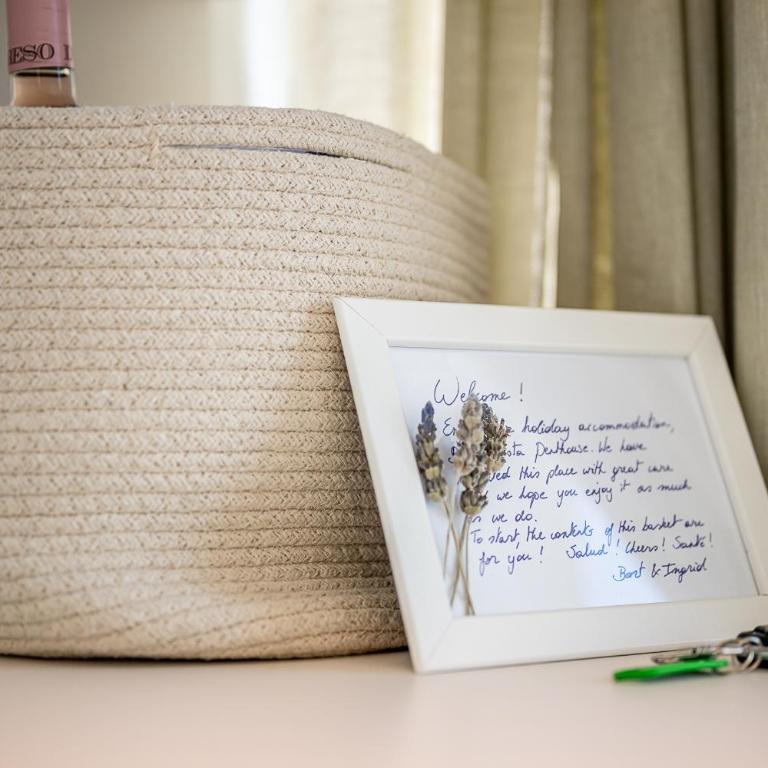 ESO
Welcome !
holiday accommodation,
Penthouse. We have
this place with great care
we hope you enjoy it as much
we do.
To start, the contents of this basket are
for you ! Salud ! Cheers ! Santé !
Bart & Ingrid